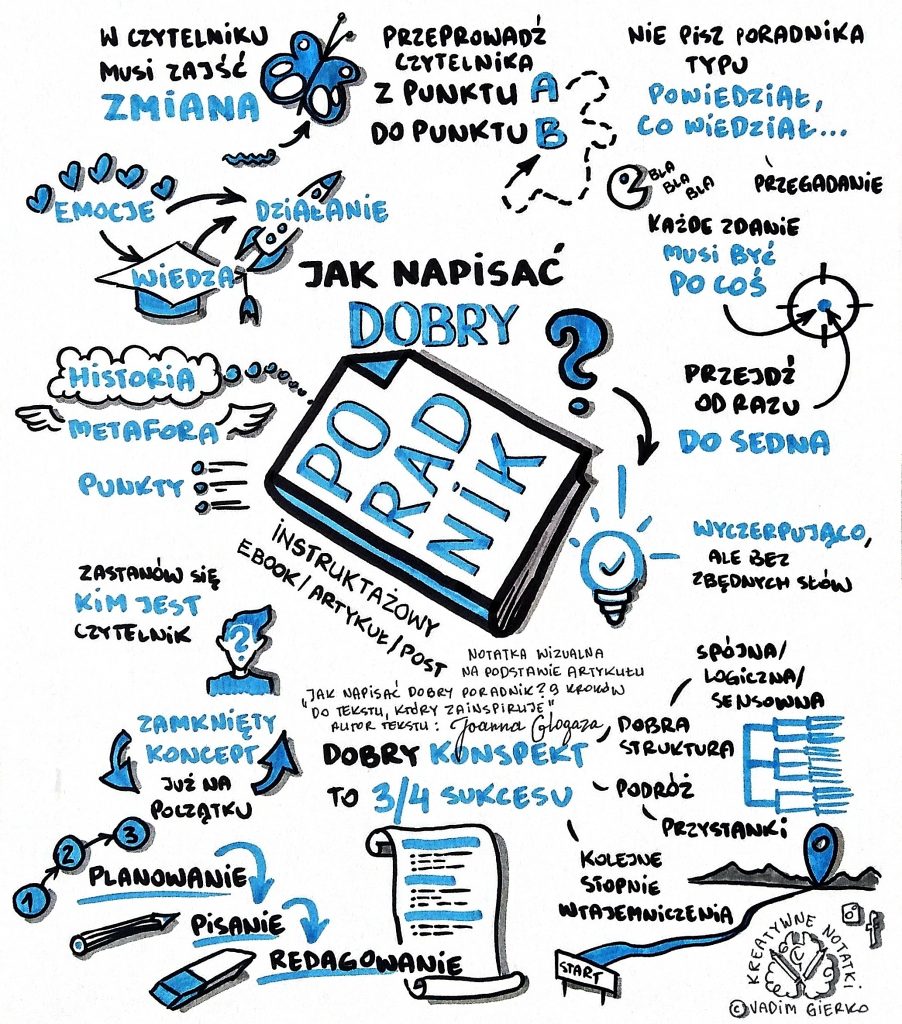 W CZYTELNIKU
MUSI ZAJŚĆ
ZMIANA
PRZEPROWADŹ
CZYTELNIKA
Z PUNKTU A
DO PUNKTU B
NIE PISZ PORADNIKA
TYPU
POWIEDZIAŁ,
CO WIEDZIAŁ...
BLA
BLA
BLA
PRZEGADANIE
EMOCJE
DZIAŁANIE
WIEDZA
KAŻDE ZDANIE
MUSI BYĆ
PO COŚ
JAK NAPISAĆ
DOBRY
PO
RAD
NIK
?
INSTRUKTAŻOWY
EBOOK/ARTYKUŁ/POST
HISTORIA
METAFORA
PUNKTY
PRZEJDŹ
OD RAZU
DO SEDNA
WYCZERPUJĄCO,
ALE BEZ
ZBĘDNYCH SŁÓW
ZASTANÓW SIĘ
KIM JEST
CZYTELNIK
?
NOTATKA WIZUALNA
NA PODSTAWIE ARTYKUŁU
"JAK NAPISAĆ DOBRY PORADNIK? 9 KROKÓW
DO TEKSTU, KTÓRY ZAINSPIRUJE"
AUTOR TEKSTU: Joanna Glogaza
ZAMKNIĘTY
KONCEPT
JUŻ NA
POCZĄTKU
DOBRY KONSPEKT
TO 3/4 SUKCESU
SPÓJNA/
LOGICZNA/
SENSOWNA
DOBRA
STRUKTURA
PODRÓŻ
PRZYSTANKI
KOLEJNE
STOPNIE
WTAJEMNICZENIA
1
2
3
PLANOWANIE
PISANIE
REDAGOWANIE
START
KREATYWNE NOTATKI
© VADIM GIERKO